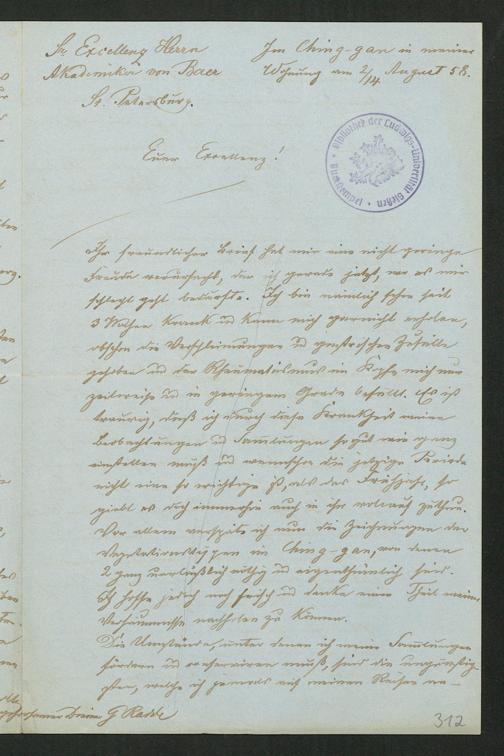 Sr. Excellenz Herrn
Akademiker von Baer
St. Petersburg.
Im Ching-gan in meiner
Wohnung am 2/14 August 58.
Bibliothek der Ludwigs-Universität Gießen
Euer Excellenz!
Ihr freundlicher Brief hat mir eine nicht geringe
Freude verursacht, der ich gerade jetzt, wo es mir
schlecht geht bedurfte. Ich bin nämlich schon seit
3 Wochen krank und kann mich garnicht erholen,
obschon die Verschleimungen und gastrischen Zufälle
gehoben und der Rheumatismus im Kopfe mich nur
zeitweise und in geringem Grade befällt. Es ist
traurig, daß ich durch diese Krankheit meine
Beobachtungen und Sammlungen so gut wie ganz
einstellen muß und wennschon die jetzige Periode
nicht eine so wichtige ist, als das Frühjahr, so
giebt es doch immerhin auch in ihr vollauf zu thun.
Vor allem verspäte ich nun die Zeichnungen der
Vegetationstypen im Ching-gan, von denen
2 ganz unerläßlich nöthig und eigenthümlich sind.
Ich hoffe jedoch noch frisch und denke einen Theil meiner
Versäumnisse nachholen zu können.
Die Umstände, unter denen ich meine Sammlungen
fördern und conserviren muß, sind die ungünstig-
sten, welche ich jemals auf meinen Reisen er-
gehorsamer Diener G Radde
312